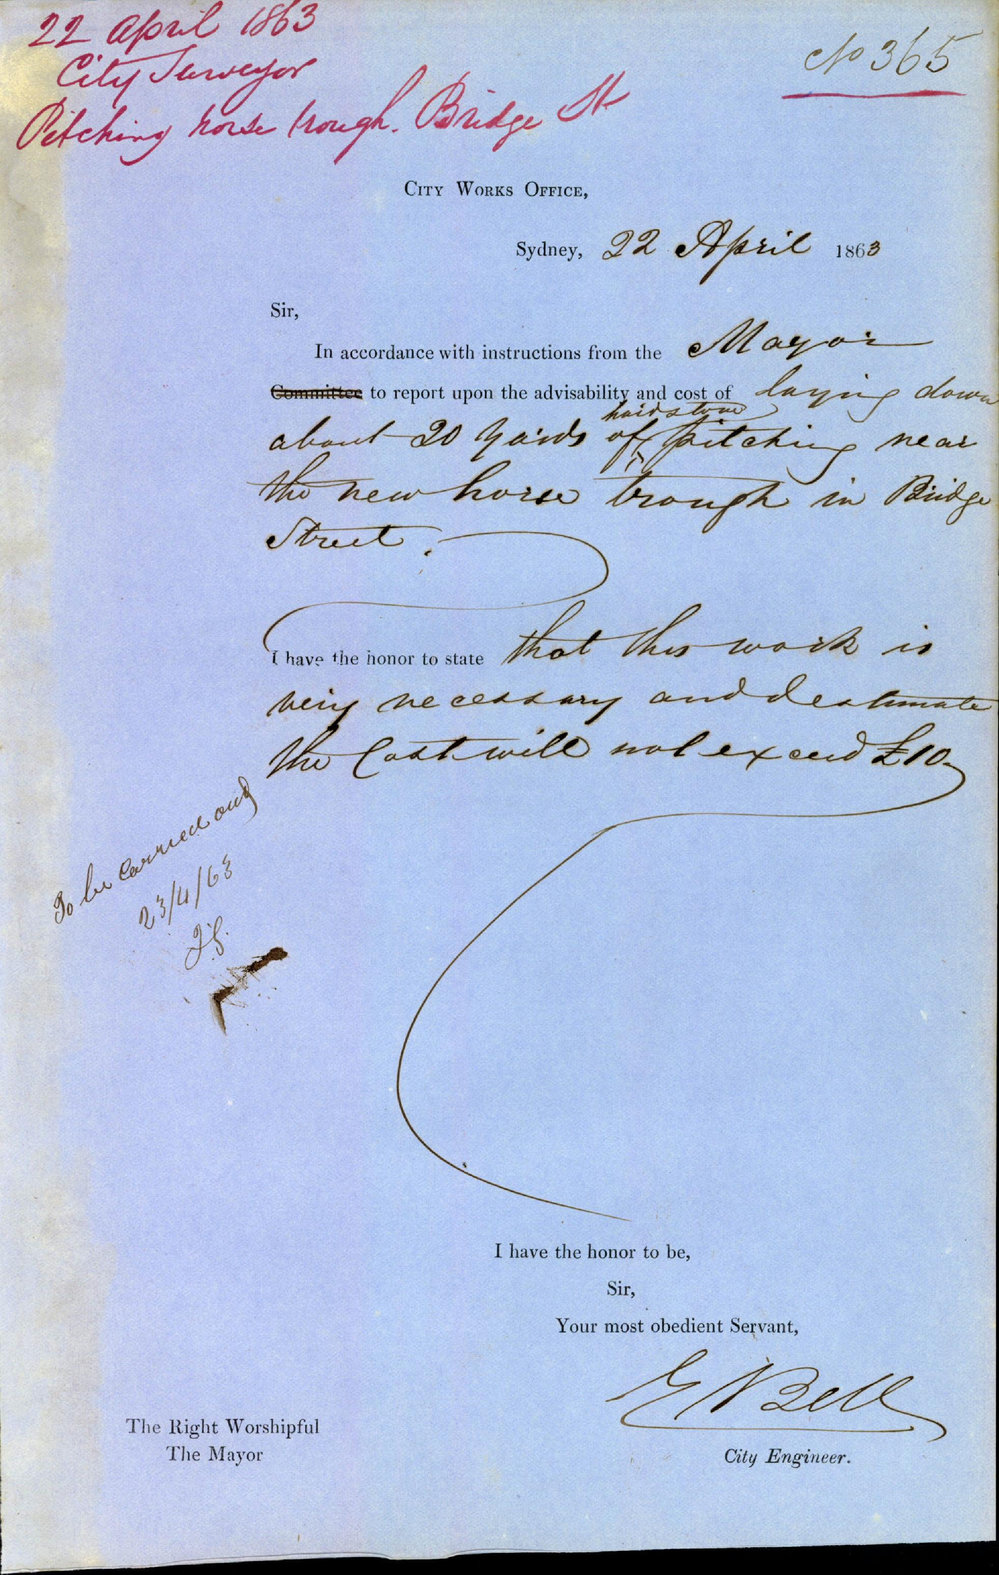 22 April 1863
City Surveyor
Pitching horse trough. Bridge St
No 365
City Works Office,
Sydney, 22 April 1863
Sir,
In accordance with instructions from the Mayor
Committee to report upon the advisability and cost of laying down
hardstone
about 20 Yards of pitching near
the new horse trough in Bridge
Street.
I have the honor to state that this work is
very necessary and I estimate
the Cost will not exceed £10
To be carried out
23/4/63
I have the honor to be,
Sir,
Your most obedient Servant,
E Bell
City Engineer.
The Right Worshipful
The Mayor